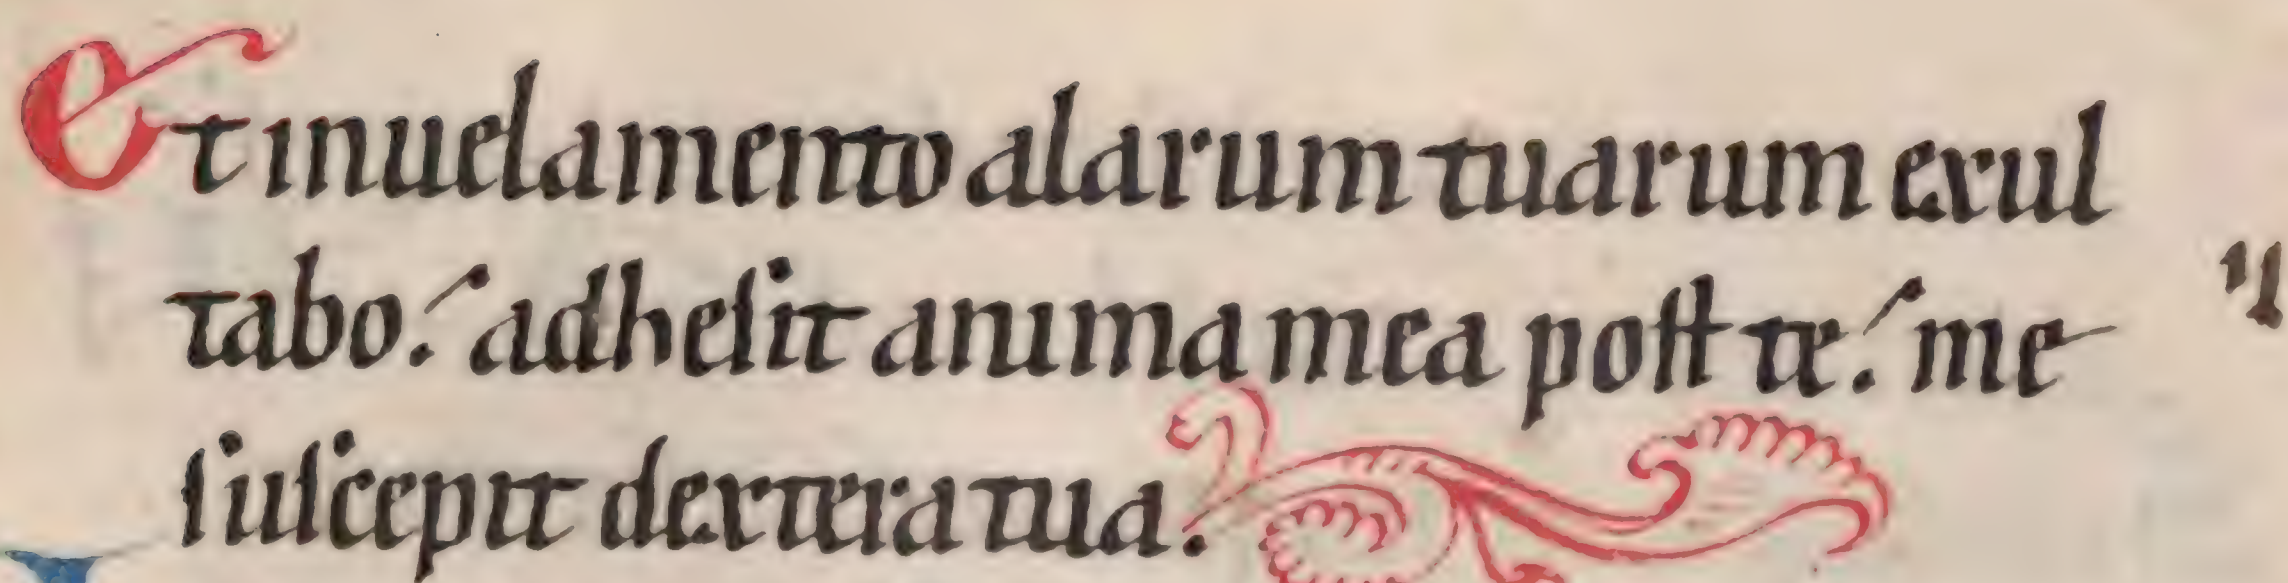 Et inuelamento alarum tuarum exul
tabo. adhesit anima mea post te. me
suscepit dextera tua.